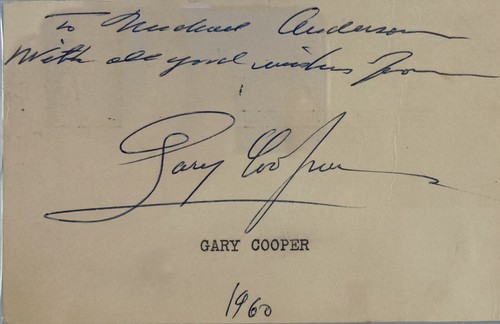 To Michael Anderson
With all good wishes from
Gary Cooper
GARY COOPER
1960